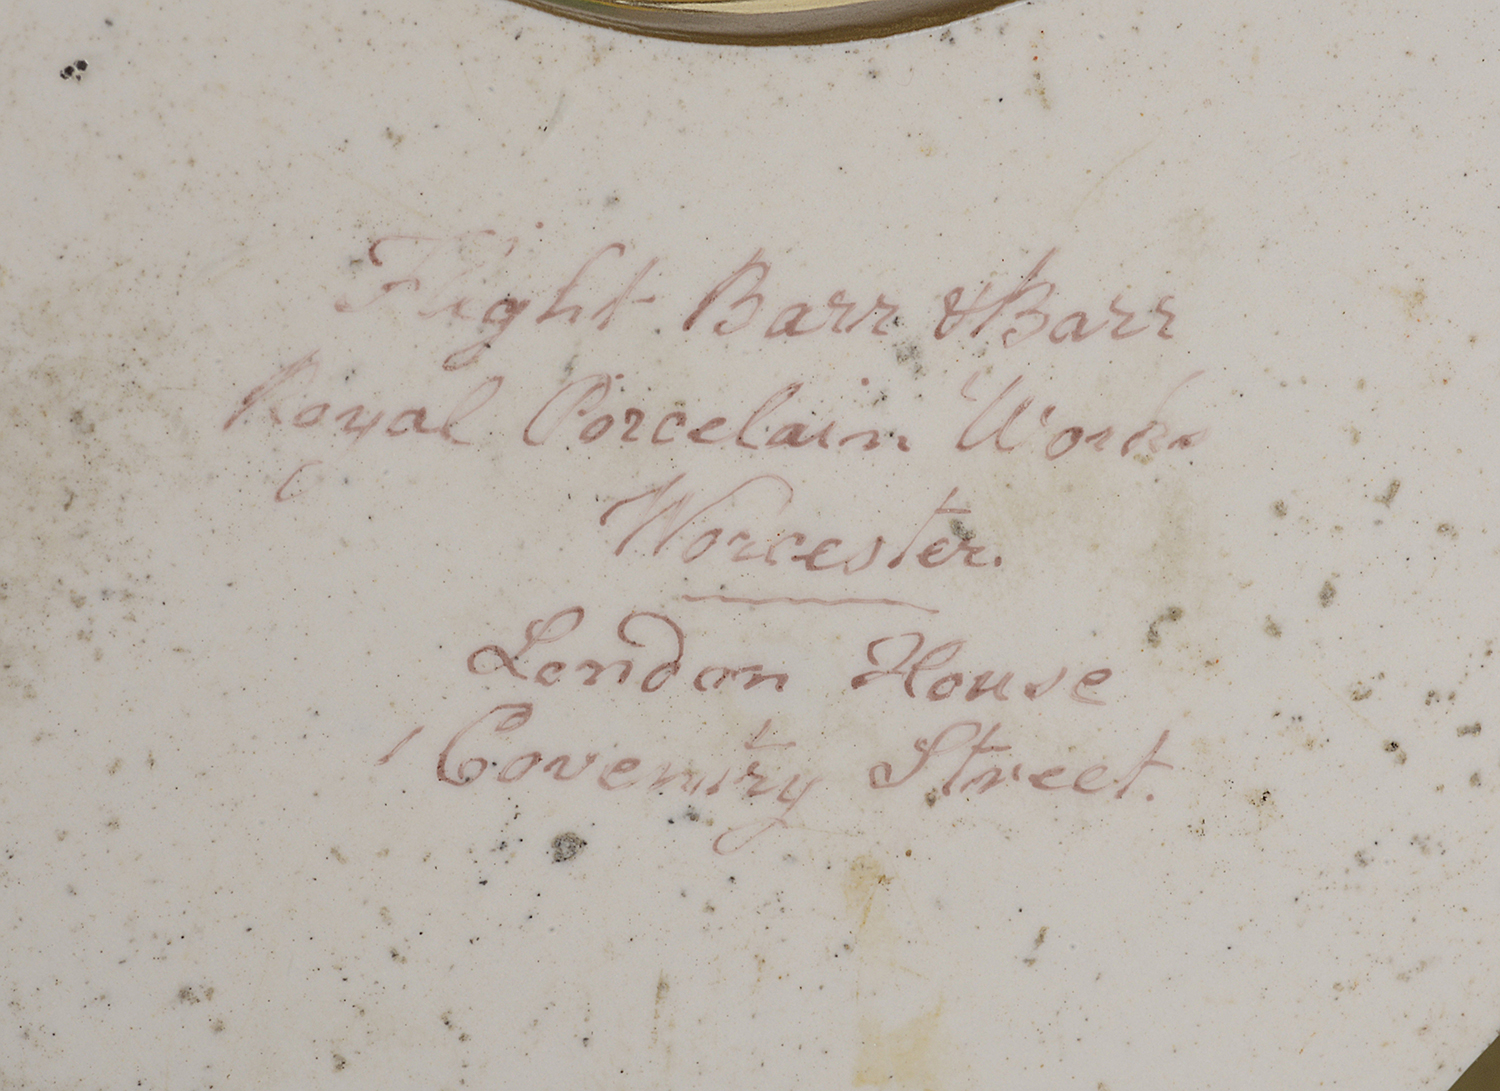 Flight Barr & Barr
Royal Porcelain Works
Worcester.
London House
1 Coventry Street.